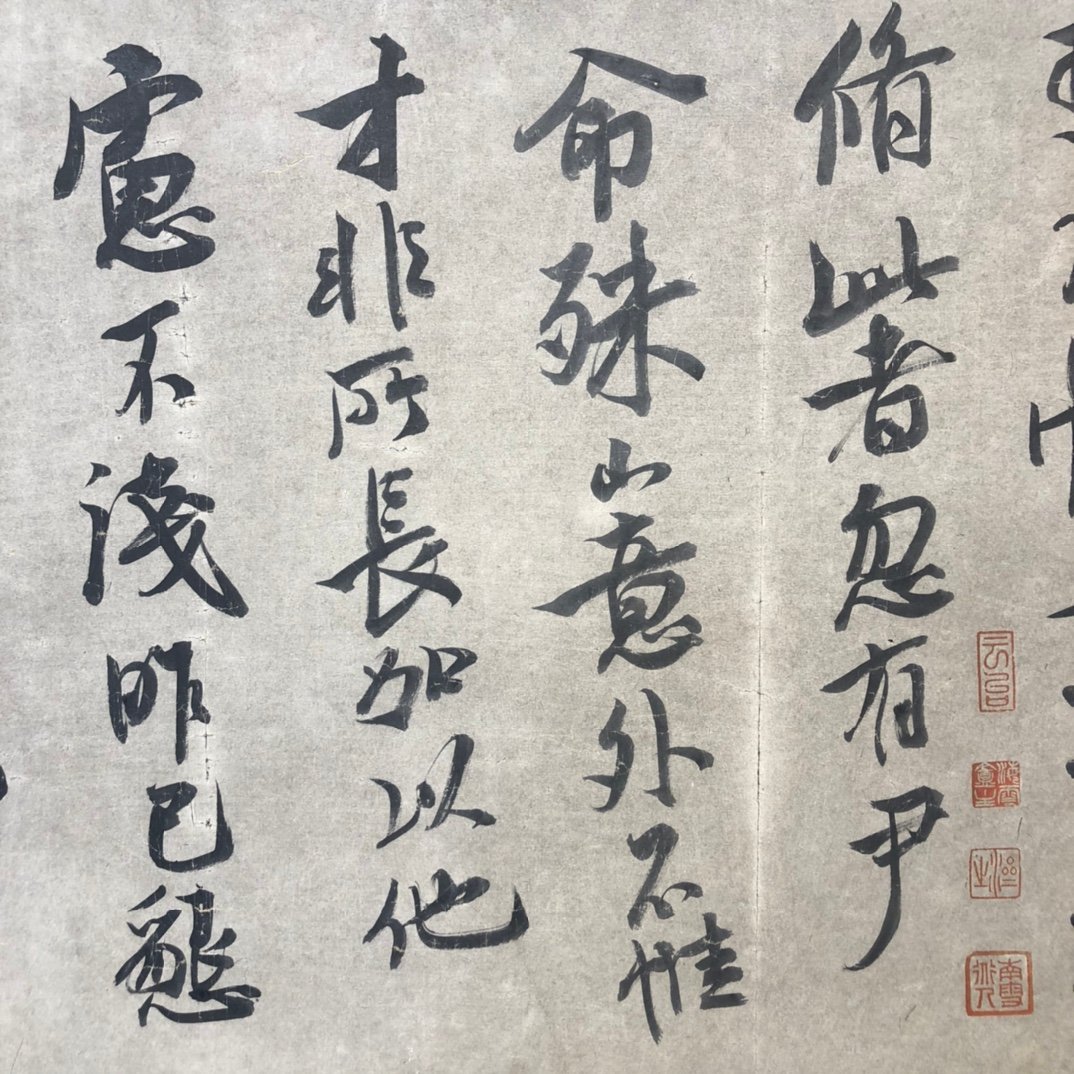 脩此者忽有尹
命殊出意外不惟
才非所長加以他
慮不淺昨已懇